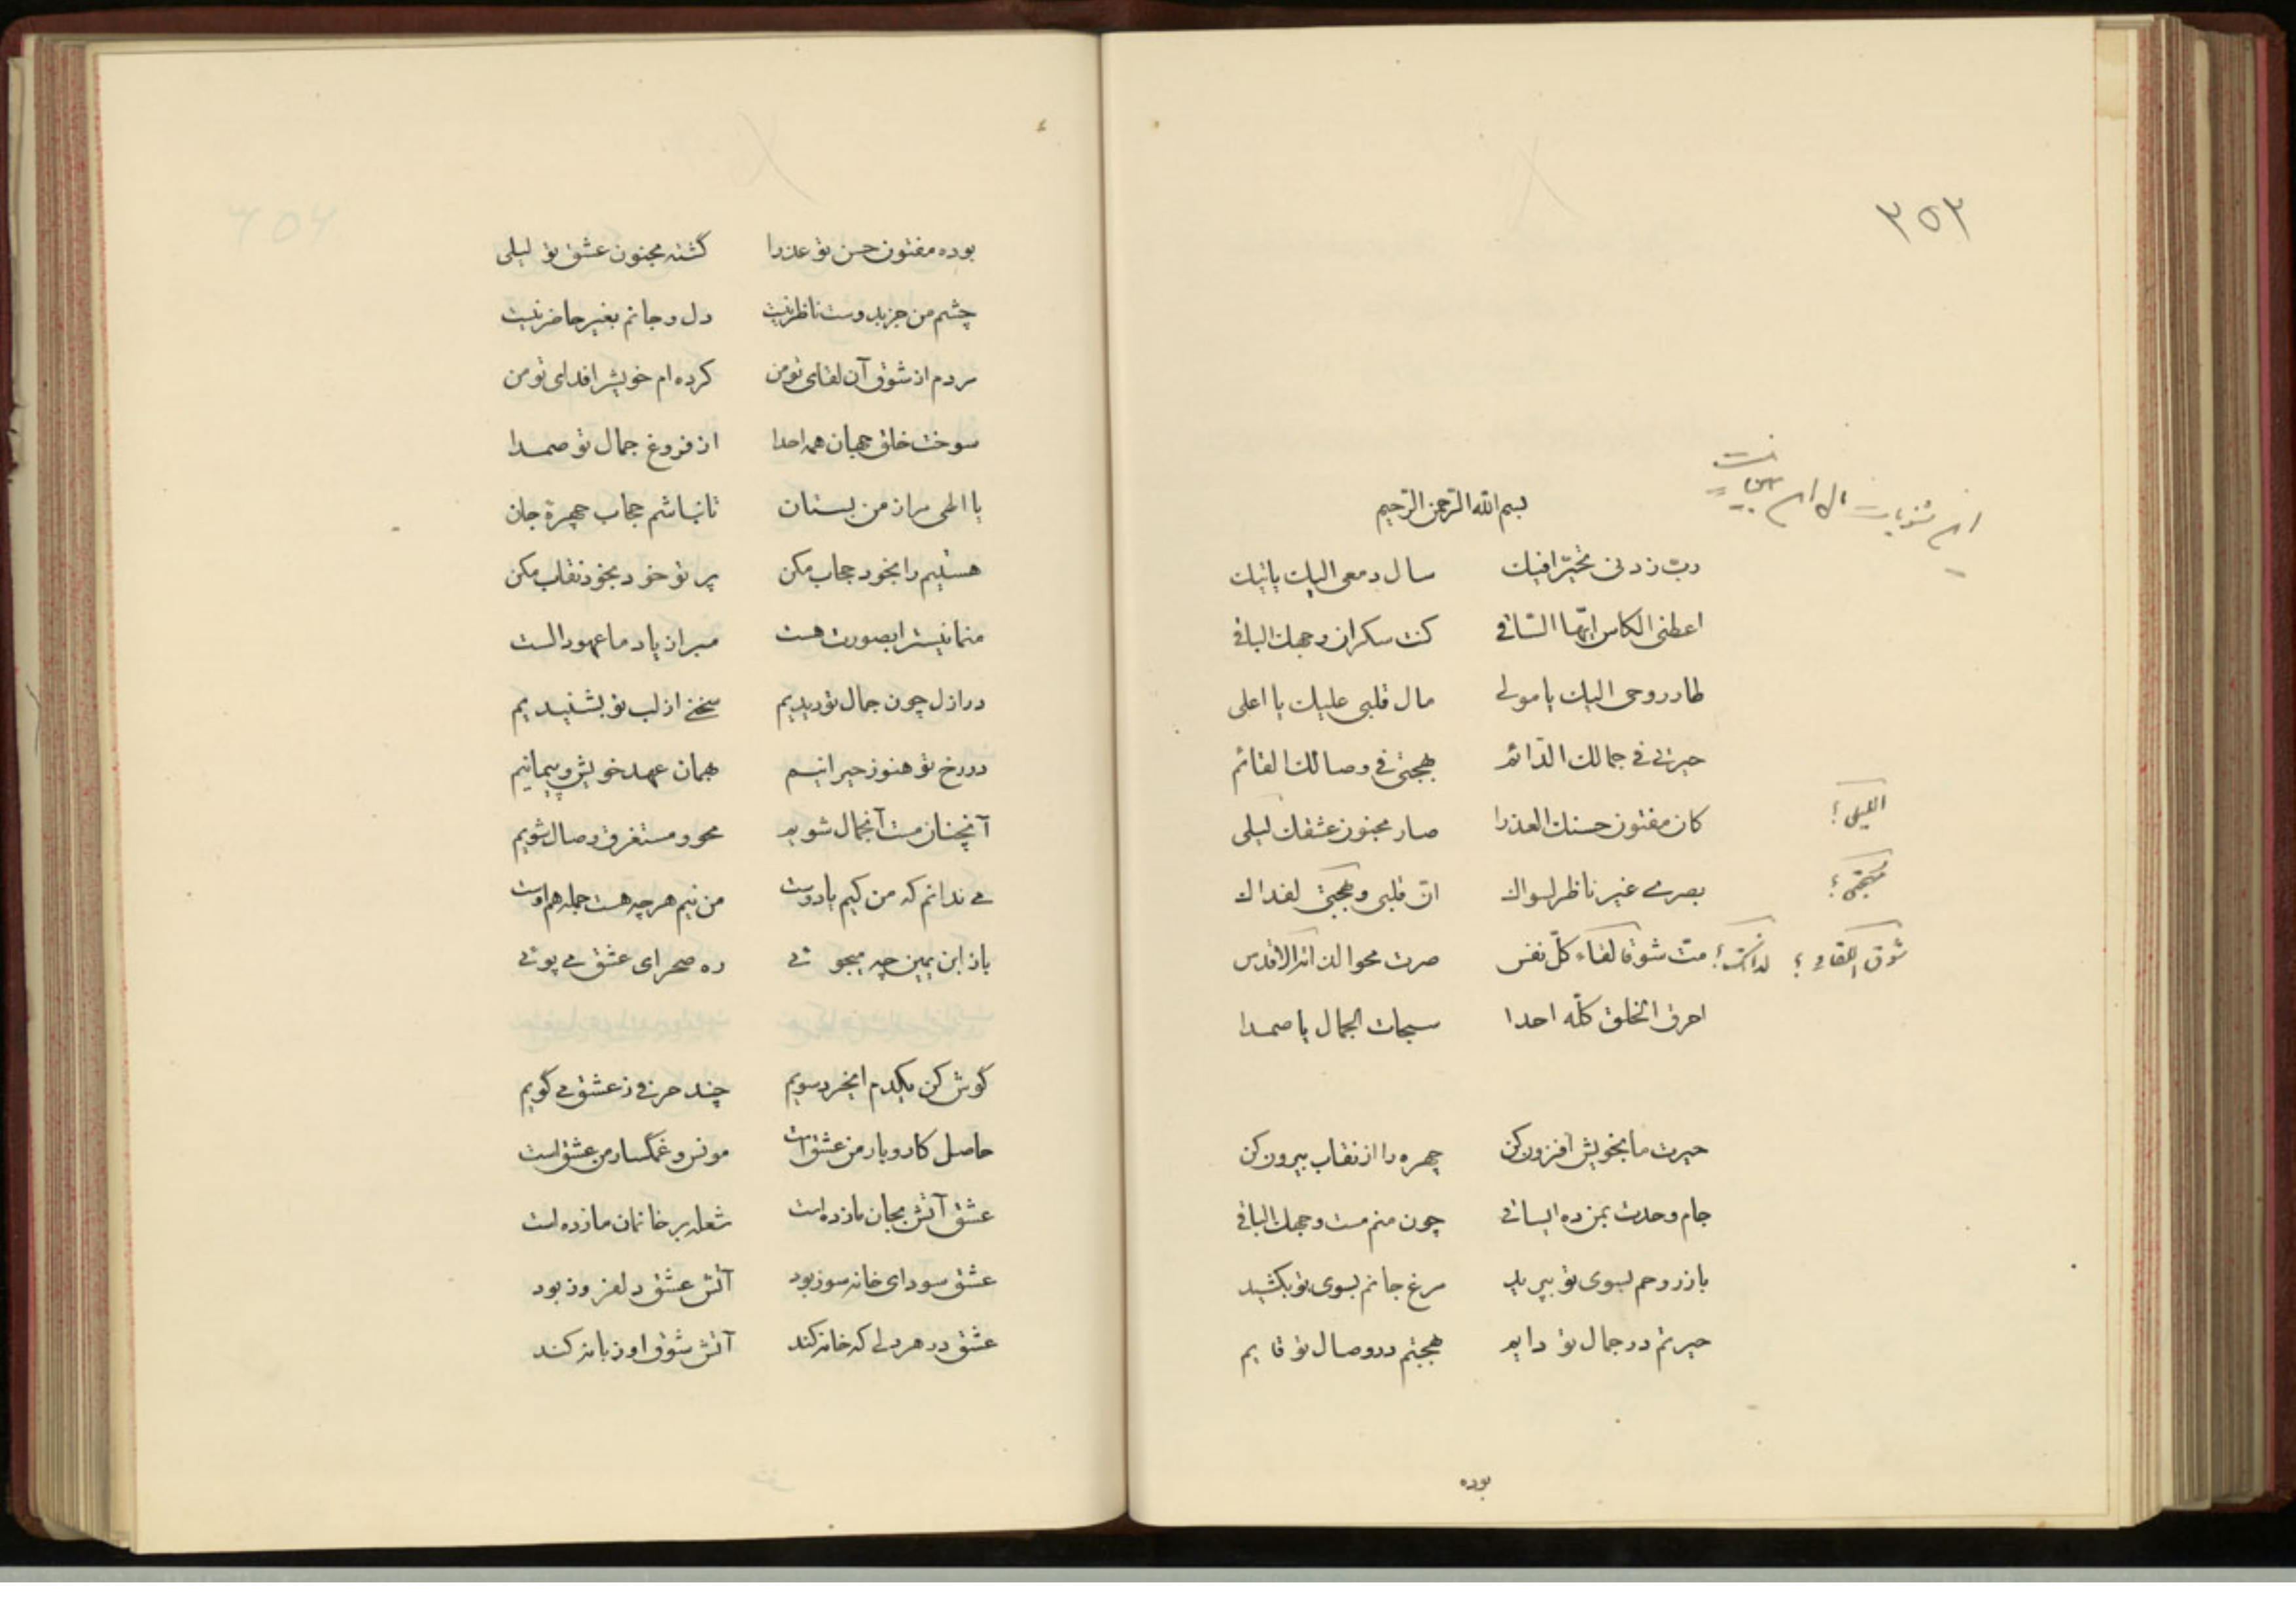 ۳۵۳
بسم الله الرّحمن الرّحیم
ربّ زدنی تحیّرا فیک    سال دمعی الیک یأتیک
اعطنی الکاس ایّها السّاقی    کنت سکران وجهک الباقی
طار روحی الیک یا مولی    مال قلبی علیک یا اعلی
حیرتی فی جمالک الدّائم    هجتی فی وصالک القائم
کان مفتون حسنک العذرا    صار مجنون عشقک لیلی
اللیلی؟
بصری غیر ناظر لسواک    انّ قلبی و هجتی لفداک
مهجتی؟
متّ شوقا لقاء کلّ نفس    صرت محوا لذاتک الاقدس
احرق الخلق کلّه احدا    سبحات الجمال یا صمدا
حیرت ما بخویش افزون کن    چهره را از نقاب بیرون کن
جام وحدت بمن ده ایساقی    چون منم مست وجهک الباقی
باز روحم بسوی تو بپرید    مرغ جانم بسوی تو بکشید
حیرتم در جمال تو دایم    هجتم در وصال تو قایم
بوده
بوده مفتون حسن تو عذرا    گشته مجنون عشق تو لیلی
چشم من جز بدوست ناظر نیست    دل و جانم بغیر حاضر نیست
مردم از شوق آن لقای تو من    کرده ام خویش را فدای تو من
سوخت خلق جهان همه احدا    از فروغ جمال تو صمدا
یا الهی مرا ز من بستان    تا نباشم حجاب چهرهٔ جان
هستیم را بخود حجاب مکن    پرتو خود بخود نقاب مکن
منما نیست را بصورت هست    مبر از یاد ما عهود الست
در ازل چون جمال تو دیدیم    سخنی از لب تو بشنیدیم
در رخ تو هنوز حیرانیم    همان عهد خویش و پیمانیم
آنچنان مست آنجمال شویم    محو و مستغرق وصال شویم
می ندانم که من کیم یا دوست    من نیم هر چه هست جمله هم اوست
باز ابن یمین چه میجوئی    ره صحرای عشق می پوئی
گوش کن یکدم ایخرد سویم    چند حرفی ز عشق می گویم
حاصل کار و بار من عشق است    مونس و غمگسار من عشق است
عشق آتش بجان ما زده است    شعله بر خانمان ما زده است
عشق سودای خانه سوز بود    آتش عشق دلفروز بود
عشق در هر دلی که خانه کند    آتش شوق او زبانه کند